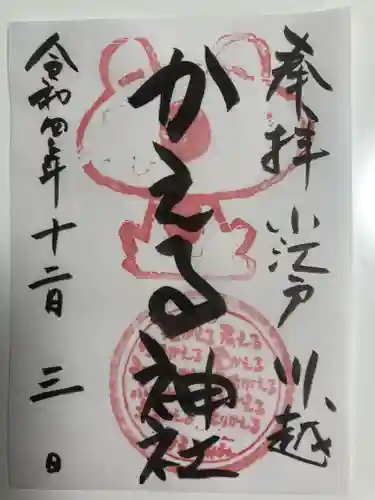 奉拝 小江戸 川越
かえる神社
令和四年 十二月 三日